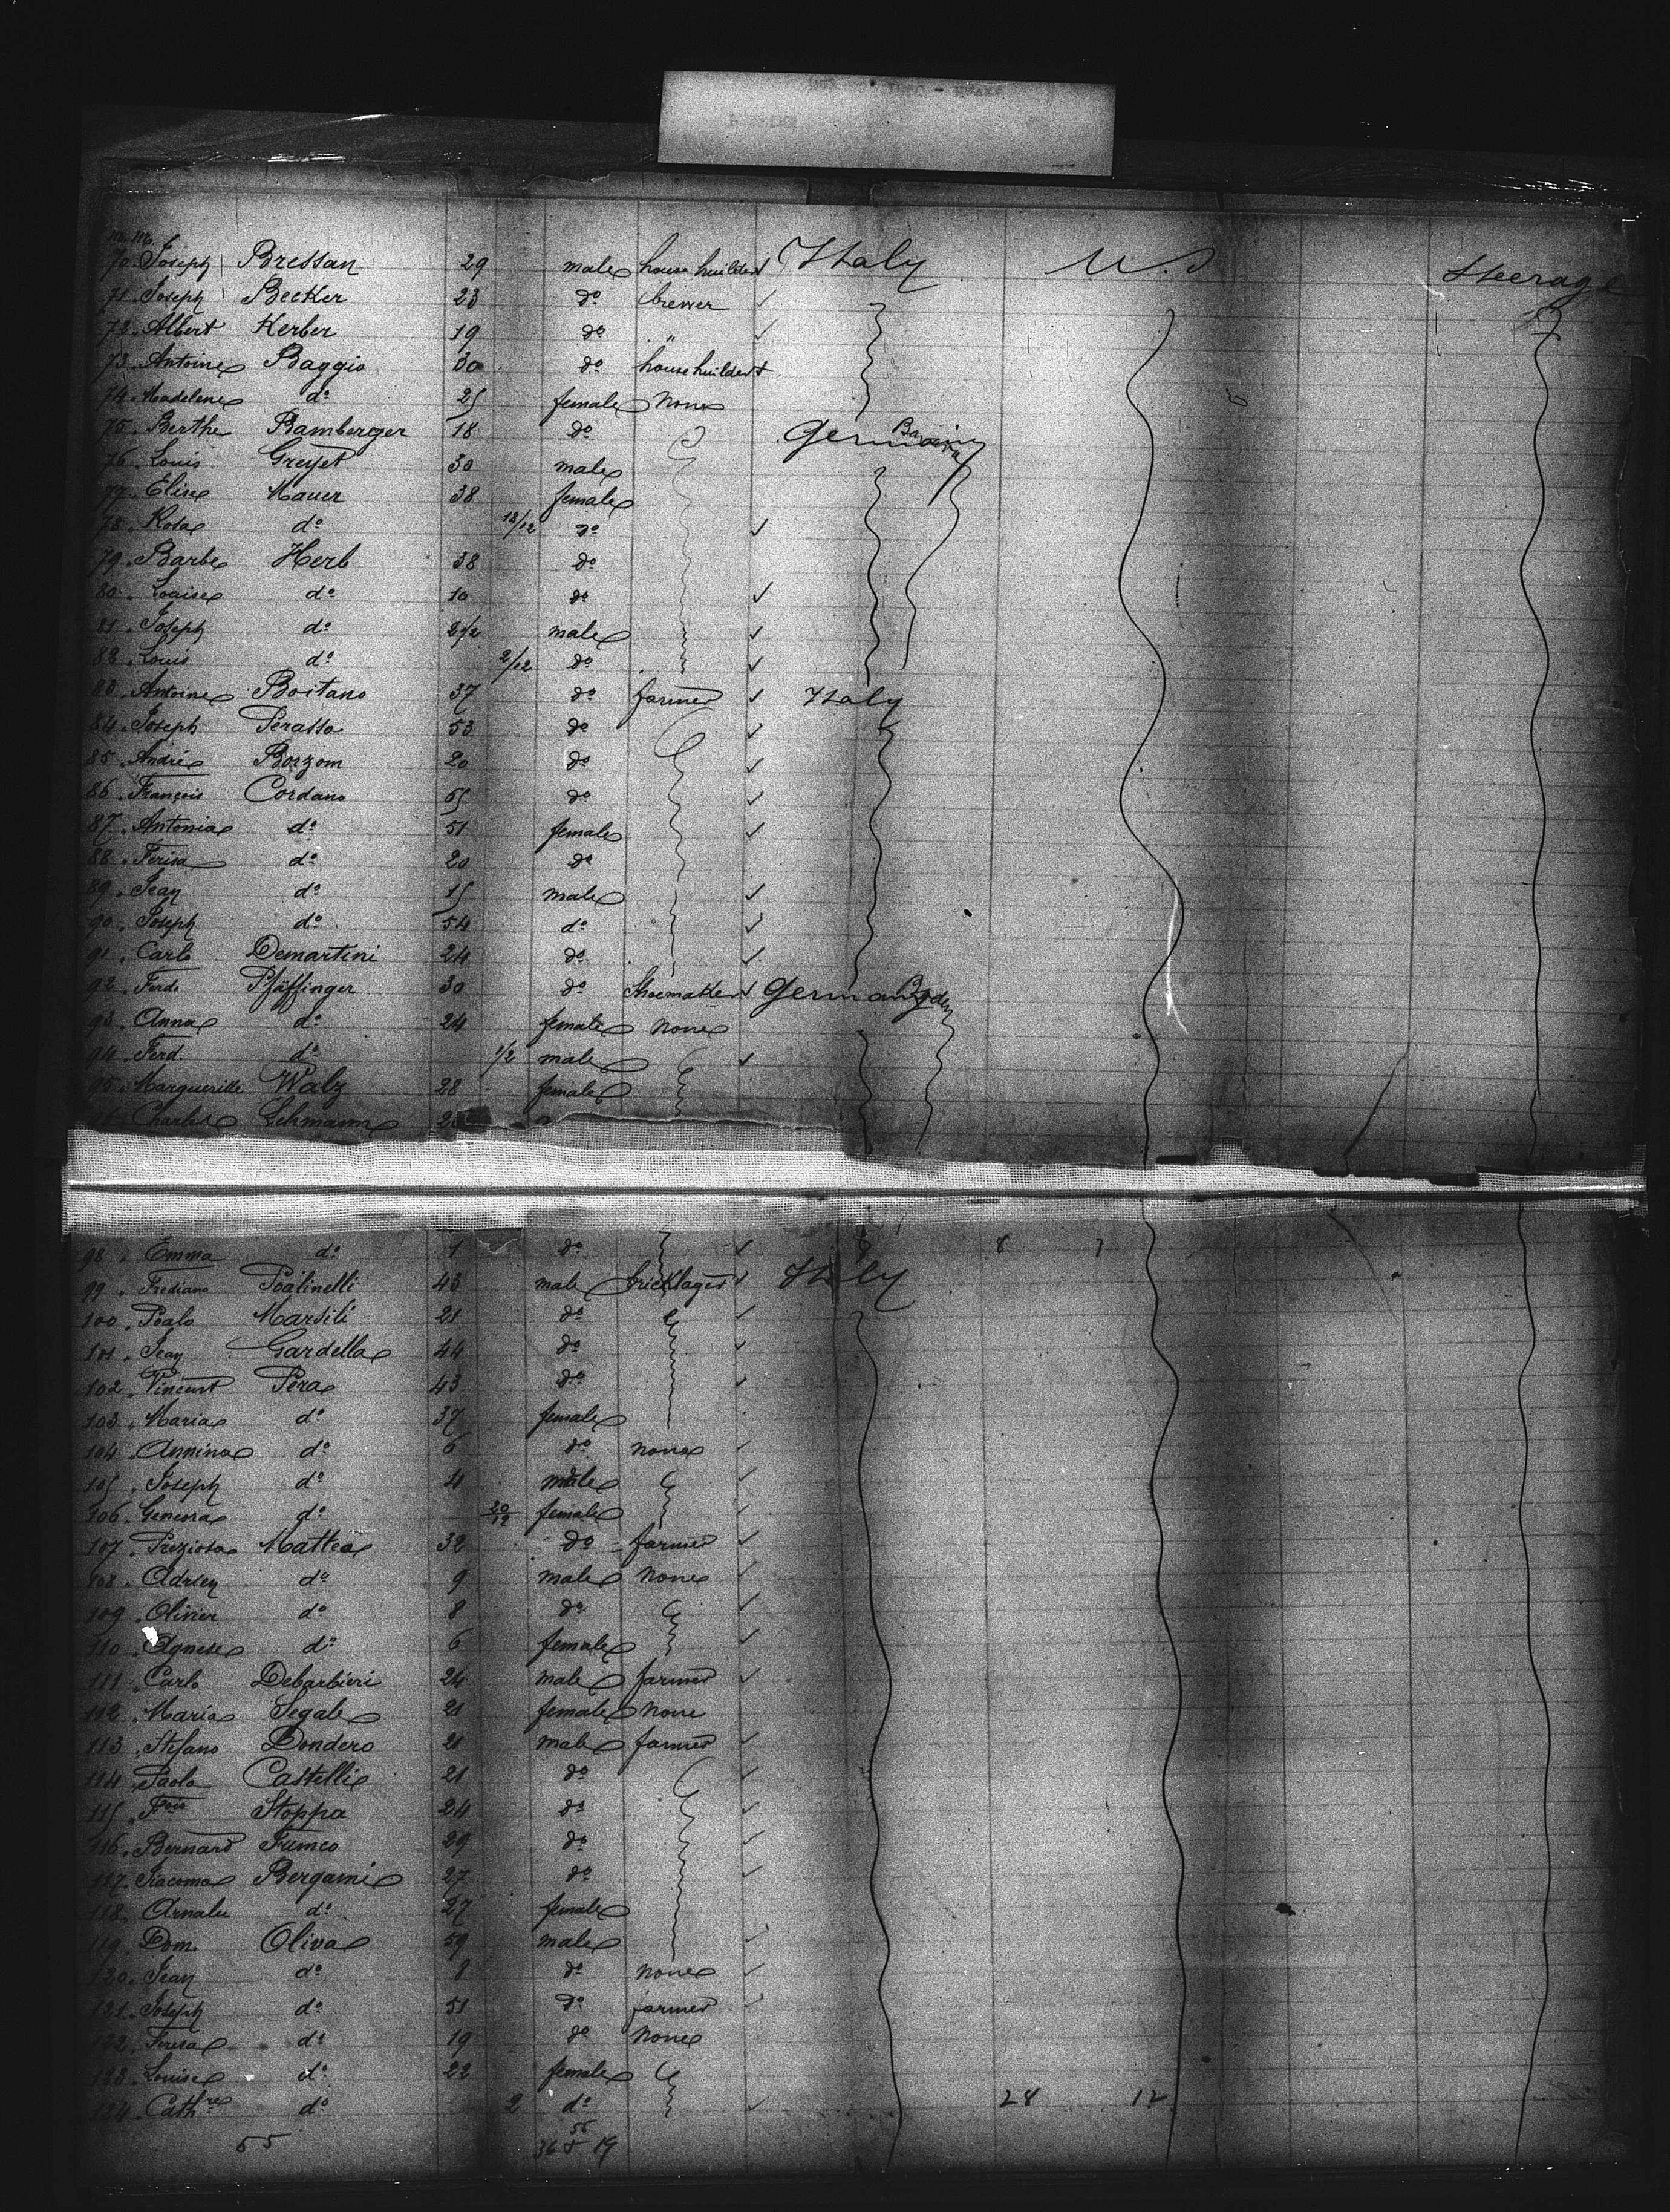 70. Joseph Bressan 29 male house builder Italy U.S Steerage
71. Joseph Becker 23 do brewer
72. Albert Kerber 19 do "
73. Antoine Baggio 30 do house builder
74. Madelene do 25 female none
75. Berthe Bamberger 18 do Germany Bavaria
76. Louis Greyet 30 male
77. Elise Mauer 38 female
78. Rosa do 18/12 do
79. Barbe Herb 38 do
80. Louise do 10 do
81. Joseph do 2 1/2 male
82. Louis do 2/12 do
83. Antoine Boitano 37 do farmer Italy
84. Joseph Perasso 53 do
85. André Borzom 20 do
86. François Cordano 65 do
87. Antonia do 51 female
88. do 20 do
89. Jean do 15 male
90. Joseph do 54 do
91. Carlo Demartini 24 do
92. Ferd. Pfäffinger 30 do Shoemaker Germany Baden
93. Anna do 24 female none
94. Ferd. do 1/2 male
95. Margueritte Walz 28 female
Charles Lehmann
98. Emma do 1 do
99. Frediano Poalinelli 43 male bricklayer Italy
100. Poalo Marsili 21 do
101. Jean Gardella 44 do
102. Vincent Pera 43 do
103. Maria do 37 female
104. Annina do 6 do none
105. Joseph do 4 male
106. Geneora do 20/12 female
107. Preziosa Mattea 32 do farmer
108. Adrien do 9 male none
109. Olivier do 8 do
110. Agnese do 6 female
111. Carlo Debarbieri 24 male farmer
112. Maria Segale 21 female none
113. Stefano Dondero 21 male farmer
114. Paolo Castelli 21 do
115. Fois Stoppa 24 do
116. Bernard Fumeo 29 do
117. Giacomo Bergami 27 do
118. Arnalu do 27 female
119. Dom. Oliva 59 male
120. Jean do 8 do none
121. Joseph do 51 do farmer
122. Teresa do 19 do none
123. Louise do 22 female
124. Cathre do 2 do 28 12
55 36 & 19
55